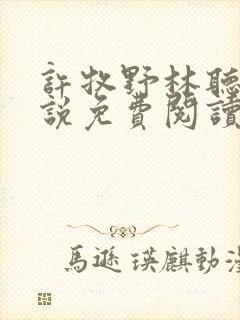 許牧野林聽
說免費閱讀
馬遜瑛麒動漫